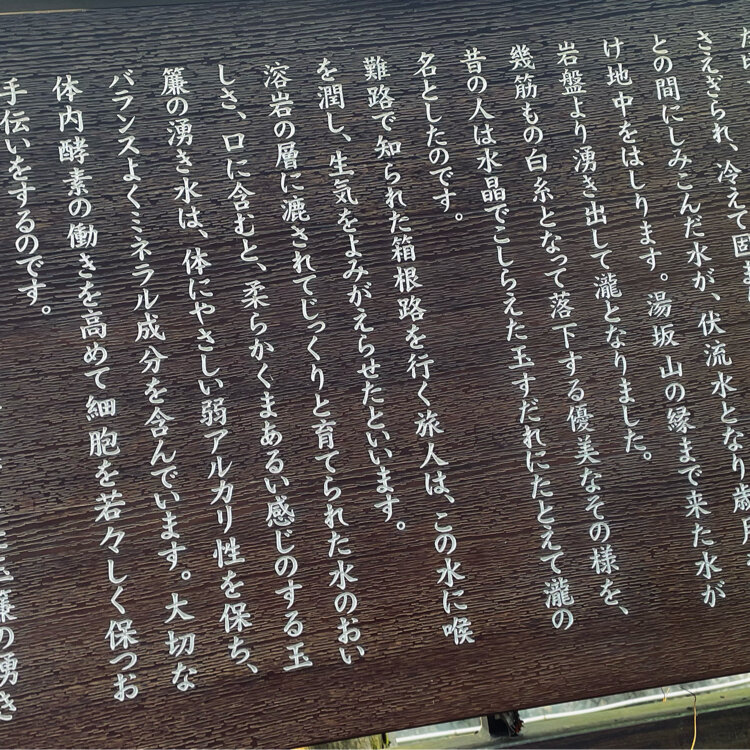 さえぎられ、冷えて固ま
との間にしみこんだ水が、伏流水となり歳月を
け地中をはしります。湯坂山の縁まで来た水が
岩盤より湧き出して瀧となりました。
幾筋もの白糸となって落下する優美なその様を、
昔の人は水晶でこしらえた玉すだれにたとえて瀧の
名としたのです。
難路で知られた箱根路を行く旅人は、この水に喉
を潤し、生気をよみがえらせたといいます。
溶岩の層に漉されてじっくりと育てられた水のおい
しさ、口に含むと、柔らかくまあるい感じのする玉
簾の湧き水は、体にやさしい弱アルカリ性を保ち、
バランスよくミネラル成分を含んでいます。大切な
体内酵素の働きを高めて細胞を若々しく保つお
手伝いをするのです。
玉簾の湧き